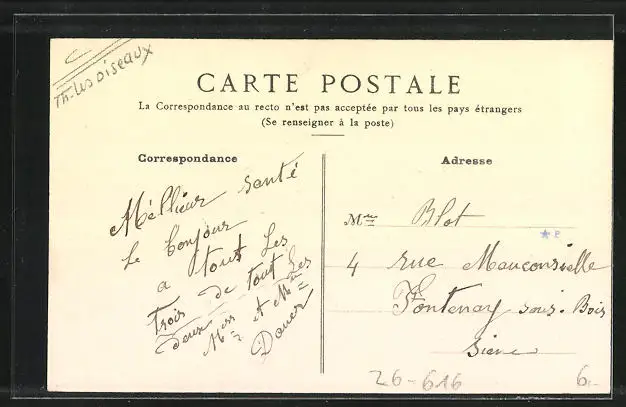 Th-les oiseaux
CARTE POSTALE
La Correspondance au recto n'est pas acceptée par tous les pays étrangers
(Se renseigner à la poste)
Correspondance
Adresse
Méllieur santé
Le bonjour
a tout Les
Trois de tout Les
deux Mess et Mme
Mme Blot
4 rue Mauconseille
Fontenay sous-Bois
Siene
26-616
6-